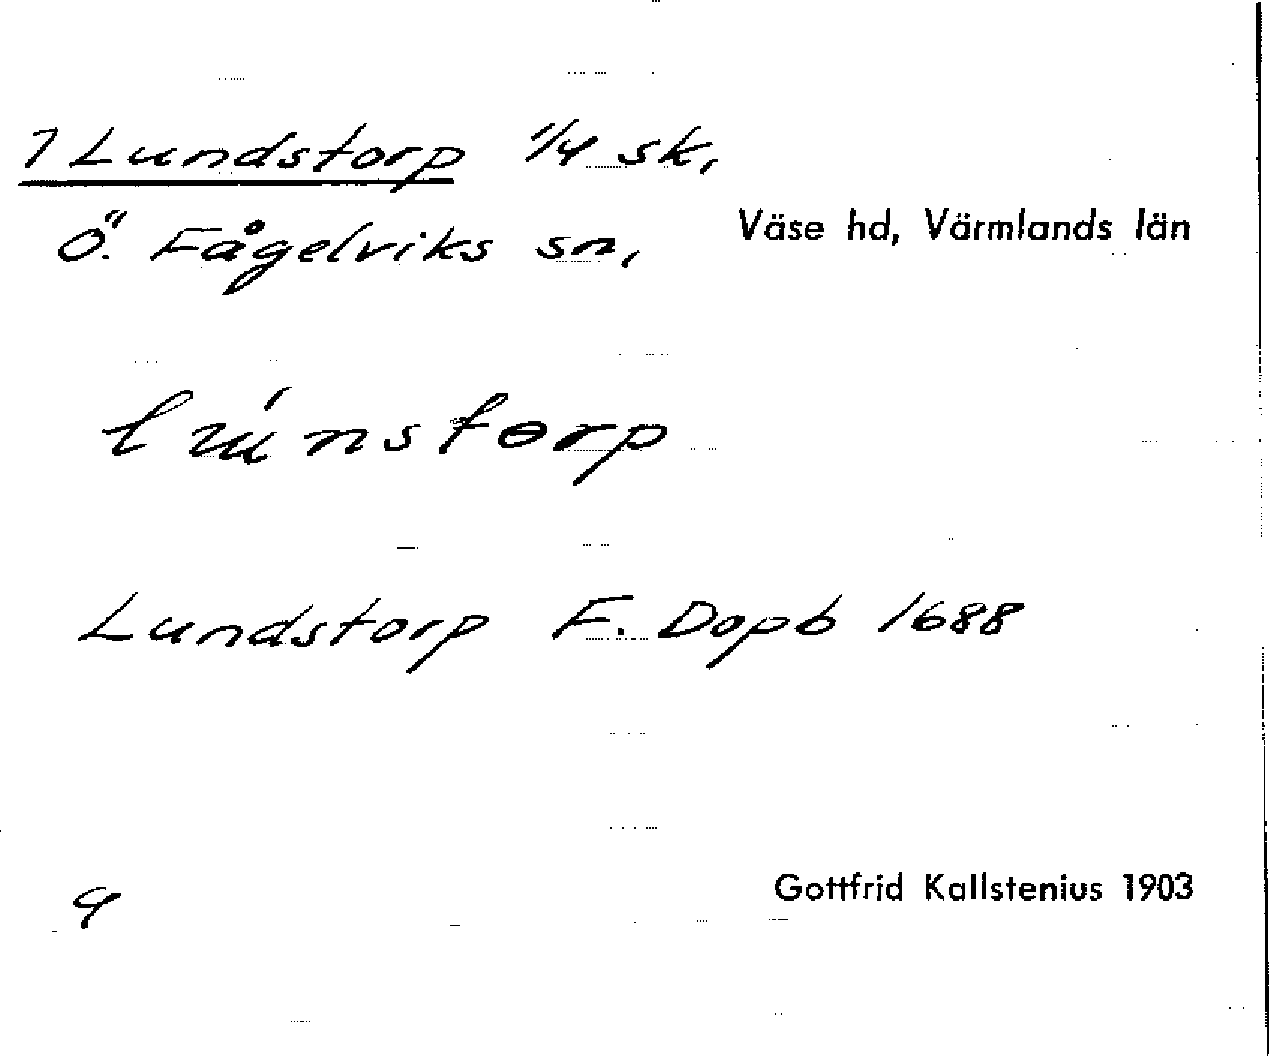 1 Lundstorp 1/4 sk,
Ö. Fågelviks sn,
Väse hd, Värmlands län
lúnstorp
Lundstorp F. Dopb 1688
Gottfrid Kallstenius 1903